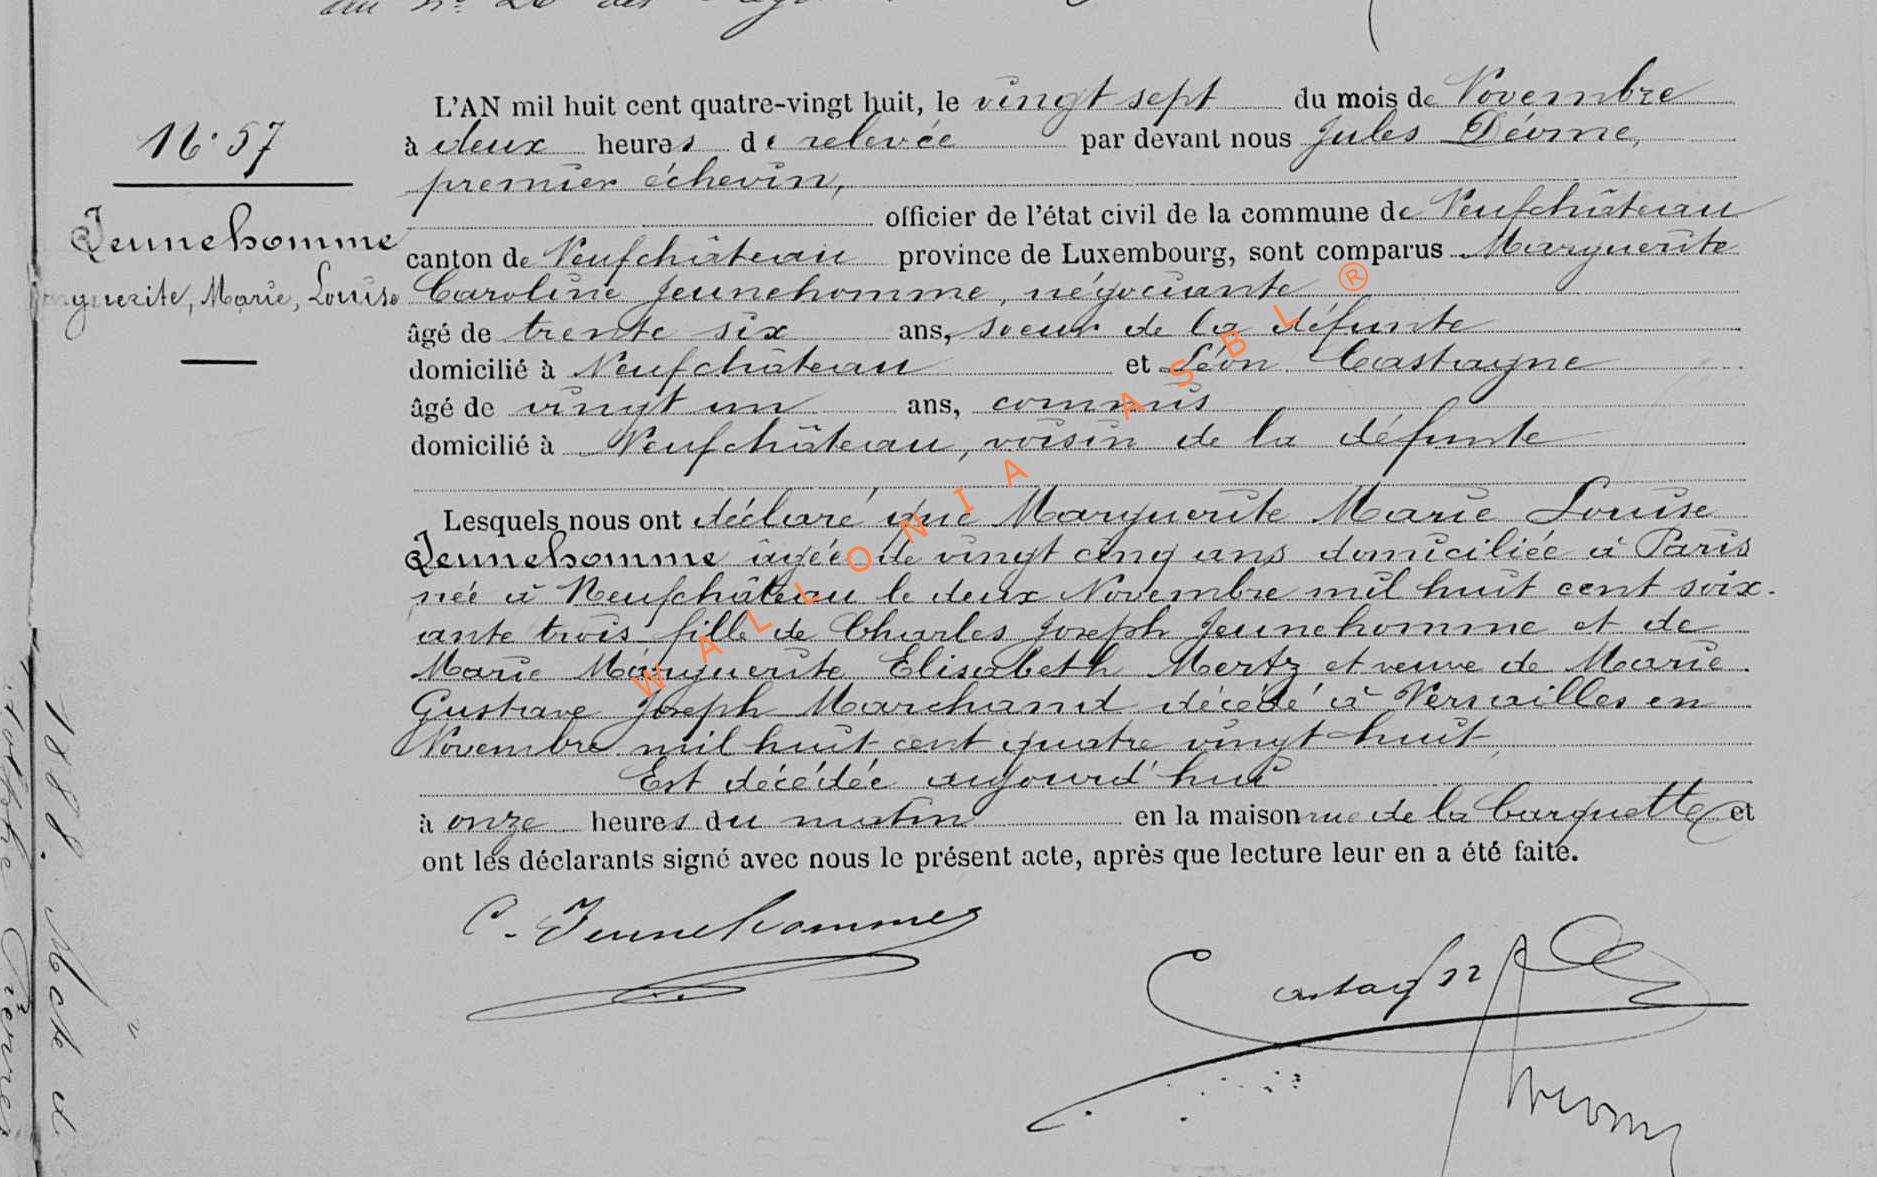 au n° 20 des
L'AN mil huit cent quatre-vingt huit, le vingt sept du mois de Novembre
à deux heures de relevée par devant nous Jules Déome,
premier échevin,
officier de l'état civil de la commune de Neufchâteau
canton de Neufchâteau province de Luxembourg, sont comparus Marguerite
Caroline Jeunehomme, négociante
âgé de trente six ans, soeur de la défunte
domicilié à Neufchâteau et Léon Castagne
âgé de vingt un ans, commis
domicilié à Neufchâteau, voisin de la défunte
Lesquels nous ont déclaré que Marguerite Marie Louise
Jeunehomme âgée de vingt cinq ans domiciliée à Paris
née à Neufchâteau le deux Novembre mil huit cent soix-
ante trois fille de Charles Joseph Jeunehomme et de
Marie Marguerite Elisabeth Mertz et veuve de Marie
Gustave Joseph Marchand décédé à Versailles en
Novembre mil huit cent quatre vingt huit,
Est décédée aujourd'hui
à onze heures du matin en la maison rue de la Carquette et
ont les déclarants signé avec nous le présent acte, après que lecture leur en a été faite.
C. Jeunehomme
Castagne
N° 57
Jeunehomme
guerite, Marie, Louise
1888.
WALLONIA ASBL ®